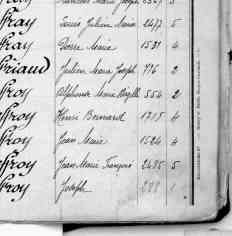 Marie Joseph
ffray Louis Julien Marie 2477 5
ffray Pierre Marie 1531 2
ffriaud Julien Marie Joseph 776 2
ffroy Alphonse Marie 554 2
ffroy Henri Bernard 1715 4
ffroy Jean Marie 1524 4
ffroy Jean Marie François 2485 5
ffroy Joseph 288 1